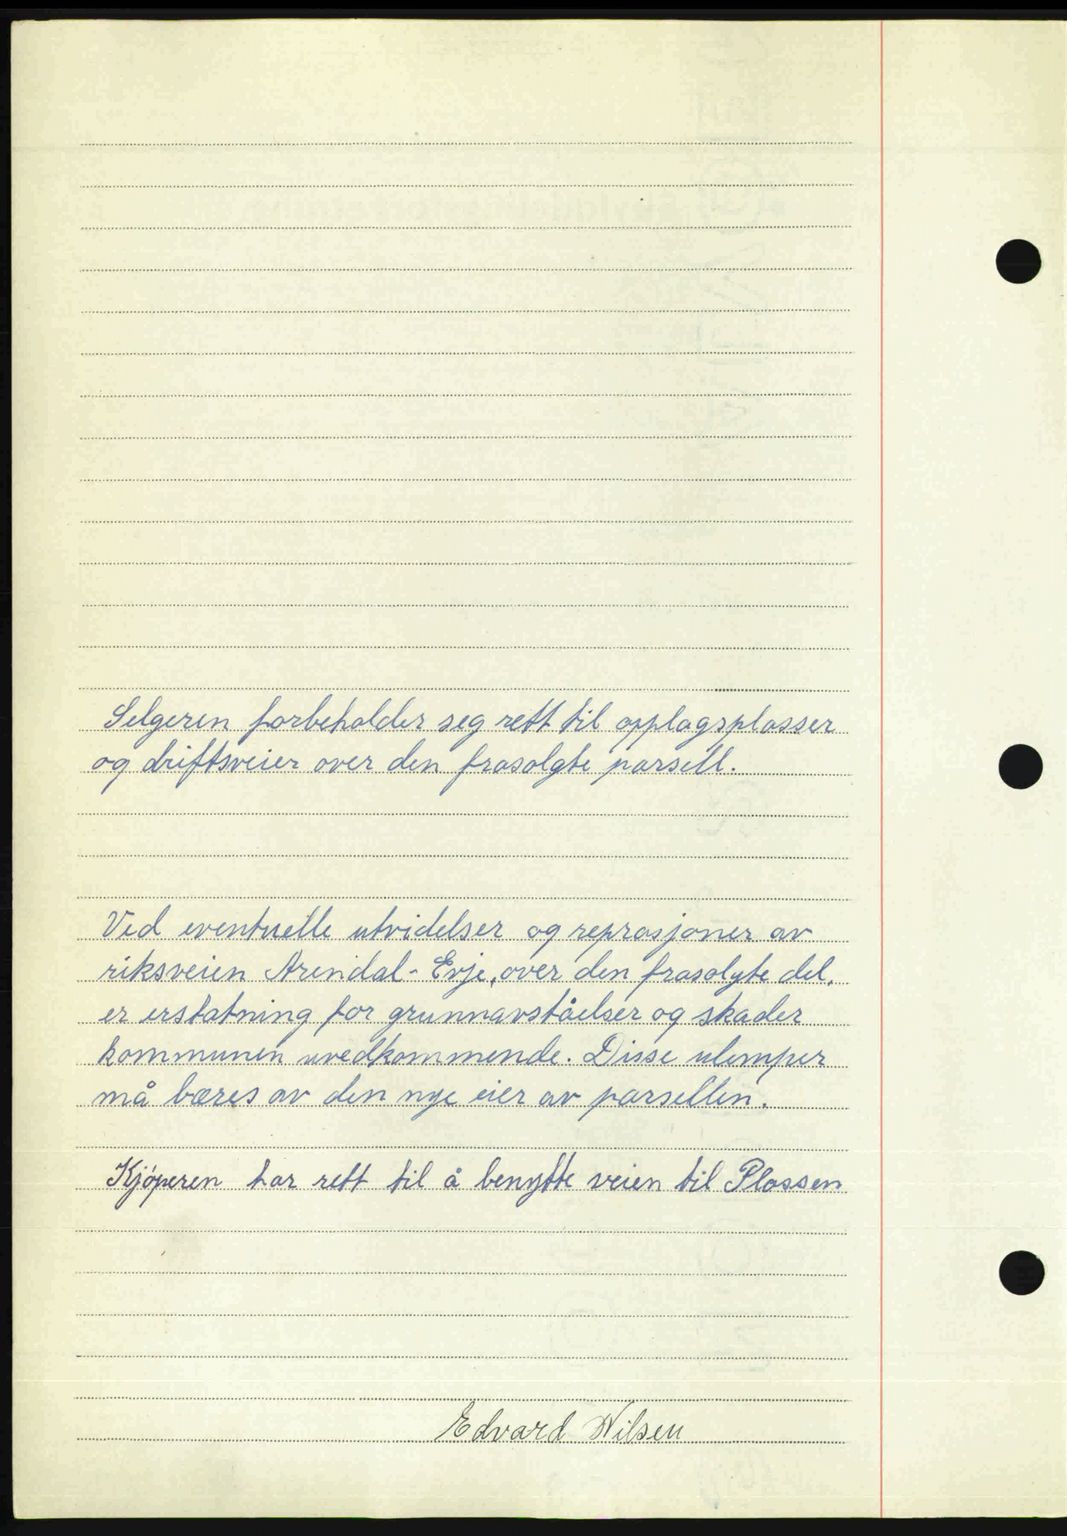 Selgeren forbeholder seg rett til opplagsplasser
og driftsveier over den frasolgte parsell.
Ved eventuelle utvidelser og reprasjoner av
riksveien Arendal - Evje, over den frasolgte del,
er erstatning for grunnavståelser og skader
kommunen uvedkommende. Disse ulemper
må bæres av den nye eier av parsellen.
Kjöperen har rett til å benytte veien til Plassen
Edvard Nilsen